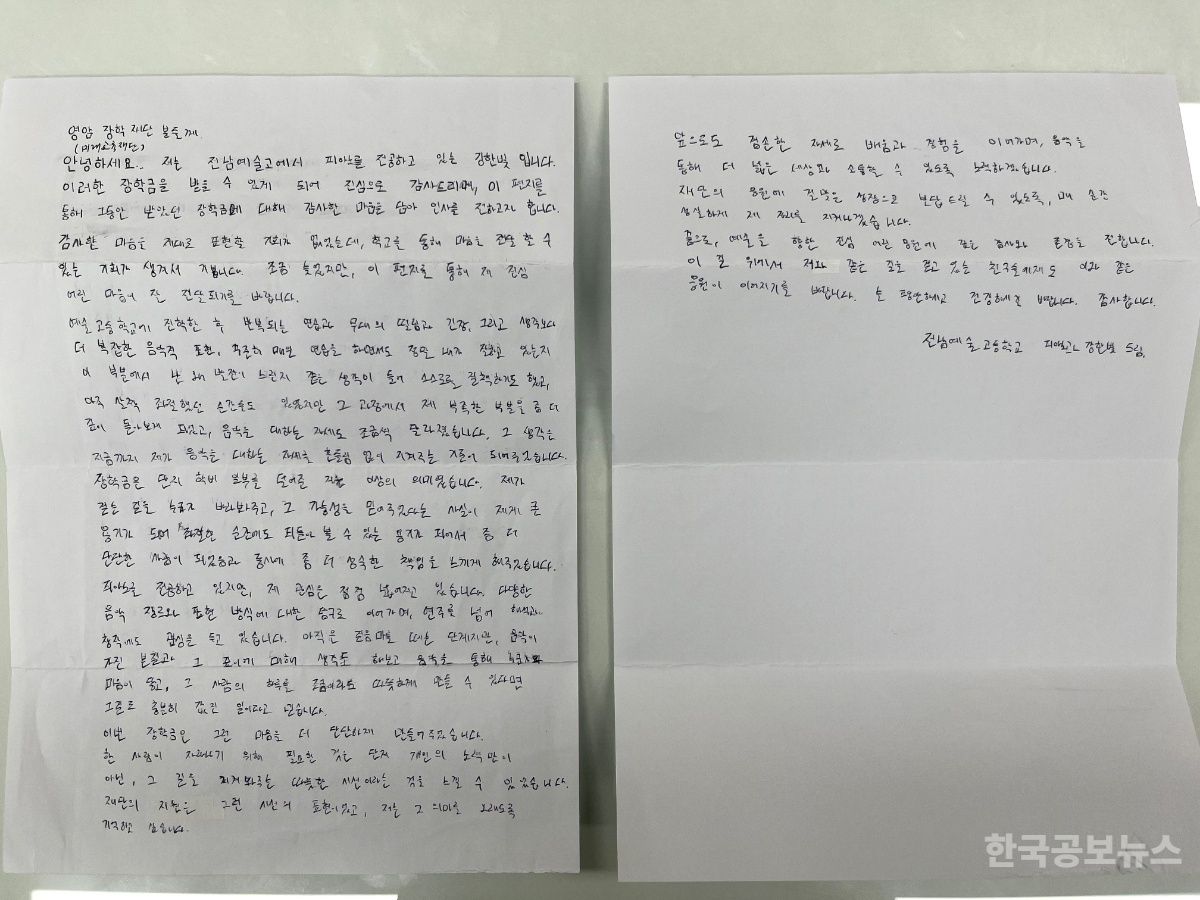 영암 장학 재단 분들께
(미래교육재단)
안녕하세요. 저는 전남예술고에서 피아노를 전공하고 있는 강한빛 입니다.
이러한 장학금을 받을 수 있게 되어 진심으로 감사드리며, 이 편지를
통해 그동안 받았던 장학금에 대해 감사한 마음을 담아 인사를 전하고자 합니다.
감사한 마음을 제대로 표현할 기회가 없었는데, 학교를 통해 마음을 전달 할 수
있는 기회가 생겨서 기쁩니다. 조금 늦었지만, 이 편지를 통해 제 진심
어린 마음이 잘 전달되기를 바랍니다.
예술고등학교에 진학한 후 반복되는 연습과 무대의 떨림과 긴장, 그리고 생각보다
더 복잡한 음악적 표현, 꾸준히 매번 연습을 하면서도 정말 내가 잘하고 있는지
이 부분에서 난 왜 발전이 느린지 같은 생각이 들어 스스로를 질책하기도 했고,
아주 살짝 좌절했던 순간들도 있었지만 그 과정에서 제 부족한 부분을 좀 더
깊이 돌아보게 되었고, 음악을 대하는 자세도 조금씩 달라졌습니다. 그 생각은
지금까지 제가 음악을 대하는 자세를 흔들림 없이 지켜주는 기준이 되어주고있습니다.
장학금은 단지 학비 부분를 덜어준 지원 이상의 의미였습니다. 제가
걷는 길을 누군가 바라봐주고, 그 가능성을 믿어주었다는 사실이 제게 큰
용기가 되어 좌절한 순간에도 되돌아 볼 수 있는 용기가 되어서 좀 더
단단한 사람이 되었음과 동시에 좀 더 성숙한 책임을 느끼게 해주었습니다.
피아노를 전공하고 있지만, 제 관심은 점점 넓어지고 있습니다. 다양한
음악 장르와 표현 방식에 대한 탐구로 이어가며, 연주를 넘어 해석과
창작에도 관심을 두고 있습니다. 아직은 걸음마를 떼는 단계지만, 음악이
가진 본질과 그 깊이에 대해 생각도 해보고 음악을 통해 누군가의
마음이 울고, 그 사람의 하루를 조금이라도 따뜻하게 만들 수 있다면
그걸로 충분히 값진 일이라고 믿습니다.
이번 장학금은 그런 마음을 더 단단하게 만들어주었습니다.
한 사람이 자라나기 위해 필요한 것은 단지 개인의 노력만이
아닌, 그 길을 지켜봐주는 따뜻한 시선이라는 것을 느낄 수 있었습니다.
재단의 지원은 그런 시선의 표현이었고, 저는 그 의미를 오래도록
기억하고 싶습니다.
앞으로도 겸손한 자세로 배움과 경험을 이어가며, 음악을
통해 더 넓은 세상과 소통할 수 있도록 노력하겠습니다.
재단의 응원에 걸맞은 성장으로 보답 드릴 수 있도록, 매 순간
성실하게 제 자리를 지켜나가겠습니다.
끝으로, 예술을 향한 진심 어린 응원에 깊은 감사와 존경을 전합니다.
이 곳 위에서 저와 같은 길을 걷고 있는 친구들에게도 이와 같은
응원이 이어지기를 바랍니다. 늘 평안하시고 건강하시길 바랍니다. 감사합니다.
전남예술고등학교 피아노과 강한빛 드림.
한국공보뉴스